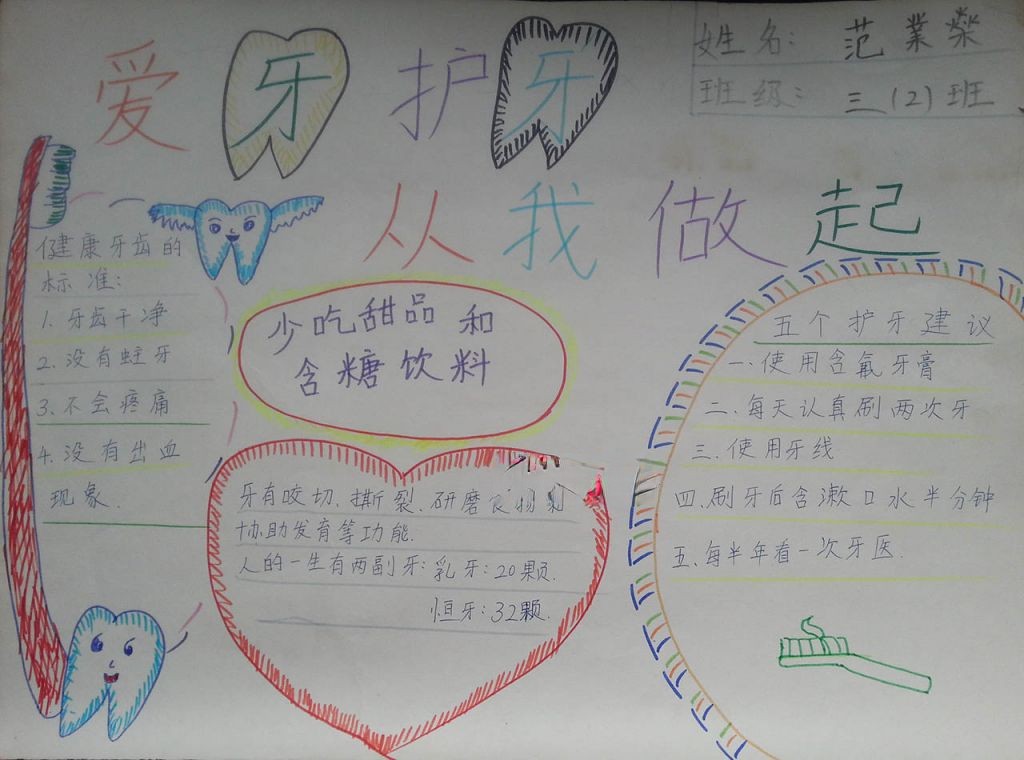 爱牙护牙
从我做起
姓名: 范業榮
班级: 三(2)班
健康牙齿的
标准:
1. 牙齿干净
2. 没有蛀牙
3. 不会疼痛
4. 没有出血
现象.
少吃甜品和
含糖饮料
牙有咬切、撕裂、研磨食物
协助发育等功能.
人的一生有两副牙: 乳牙: 20颗.
恒牙: 32颗.
五个护牙建议
一.使用含氟牙膏
二.每天认真刷两次牙
三.使用牙线
四.刷牙后含漱口水半分钟
五.每半年看一次牙医.